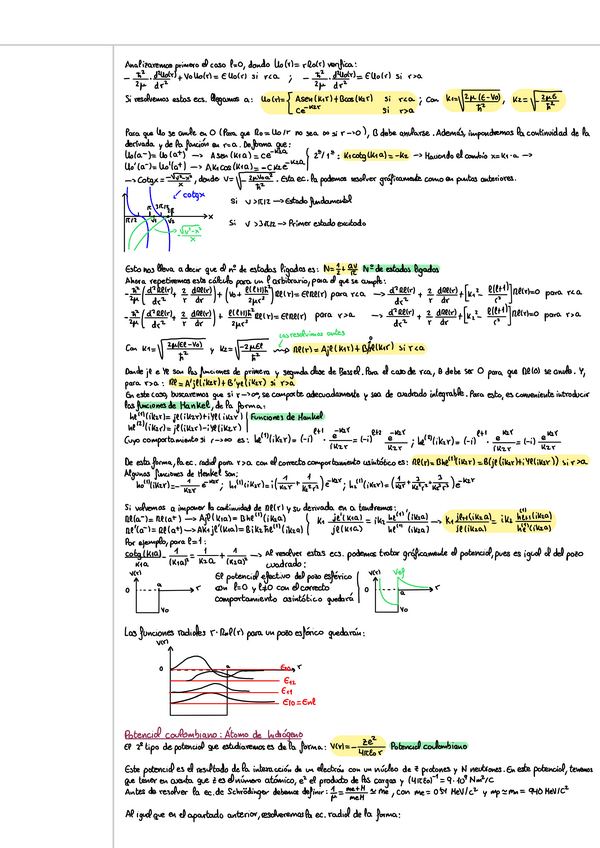 Analizaremos primero el caso l=0, donde U₀(r)=rR₀(r) verifica:
-ħ²/2μ · d²U₀(r)/dr² + V₀U₀(r) = EU₀(r) si r<a ; -ħ²/2μ · d²U₀(r)/dr² = EU₀(r) si r>a
Si resolvemos estas ecs. llegamos a: U₀(r) = { Asen(k₁r)+Bcos(k₂r) si r<a ; Ce^(-k₂r) si r>a ; Con k₁=√(2μ(E-V₀)/ħ²), k₂=√(2μE/ħ²)
Para que U₀ se anule en 0 (Para que R₀=U₀/r no sea ∞ si r→0), B debe anularse. Además, impondremos la continuidad de la
derivada y de la función en r=a. De forma que:
U₀(a⁻)=U₀(a⁺) → Asen(k₁a)=Ce^(-k₂a)
U₀'(a⁻)=U₀'(a⁺) → Ak₁cos(k₁a)=-Ck₂e^(-k₂a) } 2ª/1ª: k₁cotg(k₁a)=-k₂ → Haciendo el cambio x=k₁·a →
→ Cotgx=-√(v²-x²)/x, donde V=√(-2μV₀a²/ħ²). Esta ec. la podemos resolver gráficamente como en puntos anteriores.
cotgx
Si V>π/2 → Estado fundamental
π/2 π 3π/2 V₁ V₂ x
Si V>3π/2 → Primer estado excitado
-√(v²-x²)/x
Esto nos lleva a decir que el nº de estados ligados es: N=1/2+av/π Nº de estados ligados
Ahora repetiremos este cálculo para un l arbitrario, para el que se cumple:
-ħ²/2μ (d²Rl(r)/dr² + 2/r dRl(r)/dr) + (V₀+l(l+1)ħ²/2μr²)Rl(r)=ERl(r) para r<a → d²Rl(r)/dr² + 2/r dRl(r)/dr + [k₁²-l(l+1)/r²]Rl(r)=0 para r<a
-ħ²/2μ (d²Rl(r)/dr² + 2/r dRl(r)/dr) + l(l+1)ħ²/2μr² Rl(r)=ERl(r) para r>a → d²Rl(r)/dr² + 2/r dRl(r)/dr + [k₂²-l(l+1)/r²]Rl(r)=0 para r>a
Las resolvimos antes
Con k₁=√(2μ(El-V₀)/ħ²) y k₂=√(-2μEl/ħ²) ⇝ Rl(r)=Ajl(k₁r)+Byl(k₁r) si r<a
Donde jl e Yl son las funciones de primera y segunda clase de Bessel. Para el caso de r<a, B debe ser 0 para que Rl(0) se anule. Y,
para r>a: Rl=A'jl(ik₂r)+B'yl(ik₂r) si r>a
En este caso, buscaremos que si r→∞, se comporte adecuadamente y sea de cuadrado integrable. Para esto, es conveniente introducir
las funciones de Hankel, de la forma:
hl⁽¹⁾(ik₂r)=jl(ik₂r)+iYl(ik₂r) Funciones de Hankel
hl⁽²⁾(ik₂r)=jl(ik₂r)-iYl(ik₂r)
Cuyo comportamiento si r→∞ es: hl⁽¹⁾(ik₂r)=(-i)^(l+1) · e^(-k₂r)/ik₂r=(-i)^l e^(-k₂r)/k₂r ; hl⁽²⁾(ik₂r)=(-i)^(l+1) · e^(-k₂r)/ik₂r=(-i) e^(-k₂r)/k₂r
De esta forma, la ec. radial para r>a con el correcto comportamiento asintótico es: Rl(r)=Bhl⁽¹⁾(ik₂r)=B(jl(ik₂r)+iYl(ik₂r)) si r>a
Algunas funciones de Hankel son:
h₀⁽¹⁾(ik₂r)=-1/k₂r e^(-k₂r); h₁⁽¹⁾(ik₂r)=i(1/k₂r+1/k₂²r²)e^(-k₂r); h₂⁽¹⁾(ik₂r)=(1/k₂r+3/k₂²r²+3/k₂³r³)e^(-k₂r)
Si volvemos a imponer la continuidad de Rl(r) y su derivada en a tendremos:
Rl(a⁻)=Rl(a⁺) → Ajl(k₁a)=Bhl⁽¹⁾(ik₂a)
Rl'(a⁻)=Rl'(a⁺) → Ak₁jl'(k₁a)=Bik₂hl'⁽¹⁾(ik₂a) } k₁ jl'(k₁a)/jl(k₁a)=ik₂ hl⁽¹⁾'(ik₂a)/hl⁽¹⁾(ik₂a) → k₁ jl+1(k₁a)/jl(k₁a)=ik₂ hl+1⁽¹⁾(ik₂a)/hl⁽¹⁾(ik₂a)
Por ejemplo, para l=1:
cotg(k₁a)/k₁a - 1/(k₁a)²=1/k₂a+1/(k₂a)² → Al resolver estas ecs. podemos tratar gráficamente el potencial, pues es igual al del pozo
cuadrado:
V(r) 0 a r V₀
El potencial efectivo del pozo esférico
con l=0 y l≠0 con el correcto
comportamiento asintótico quedará
V(r) Vef 0 a r V₀
Las funciones radiales r·Rnl(r) para un pozo esférico quedarán:
V(r)
0 a r
E₁₂
E₁₁
E₁₀=Enl
Potencial coulombiano: Átomo de hidrógeno
El 2º tipo de potencial que estudiaremos es de la forma: V(r)=-Ze²/4πε₀r Potencial coulombiano
Este potencial es el resultado de la interacción de un electrón con un núcleo de Z protones y N neutrones. En este potencial, tenemos
que tener en cuenta que Z es el número atómico, e² el producto de las cargas y (4πε₀)⁻¹=9·10⁹ Nm²/C
Antes de resolver la ec. de Schrödinger debemos definir: 1/μ=me+M/meM≃me, con me=0'51 MeV/c² y mp≃mn=940 MeV/c²
Al igual que en el apartado anterior, resolveremos la ec. radial de la forma: